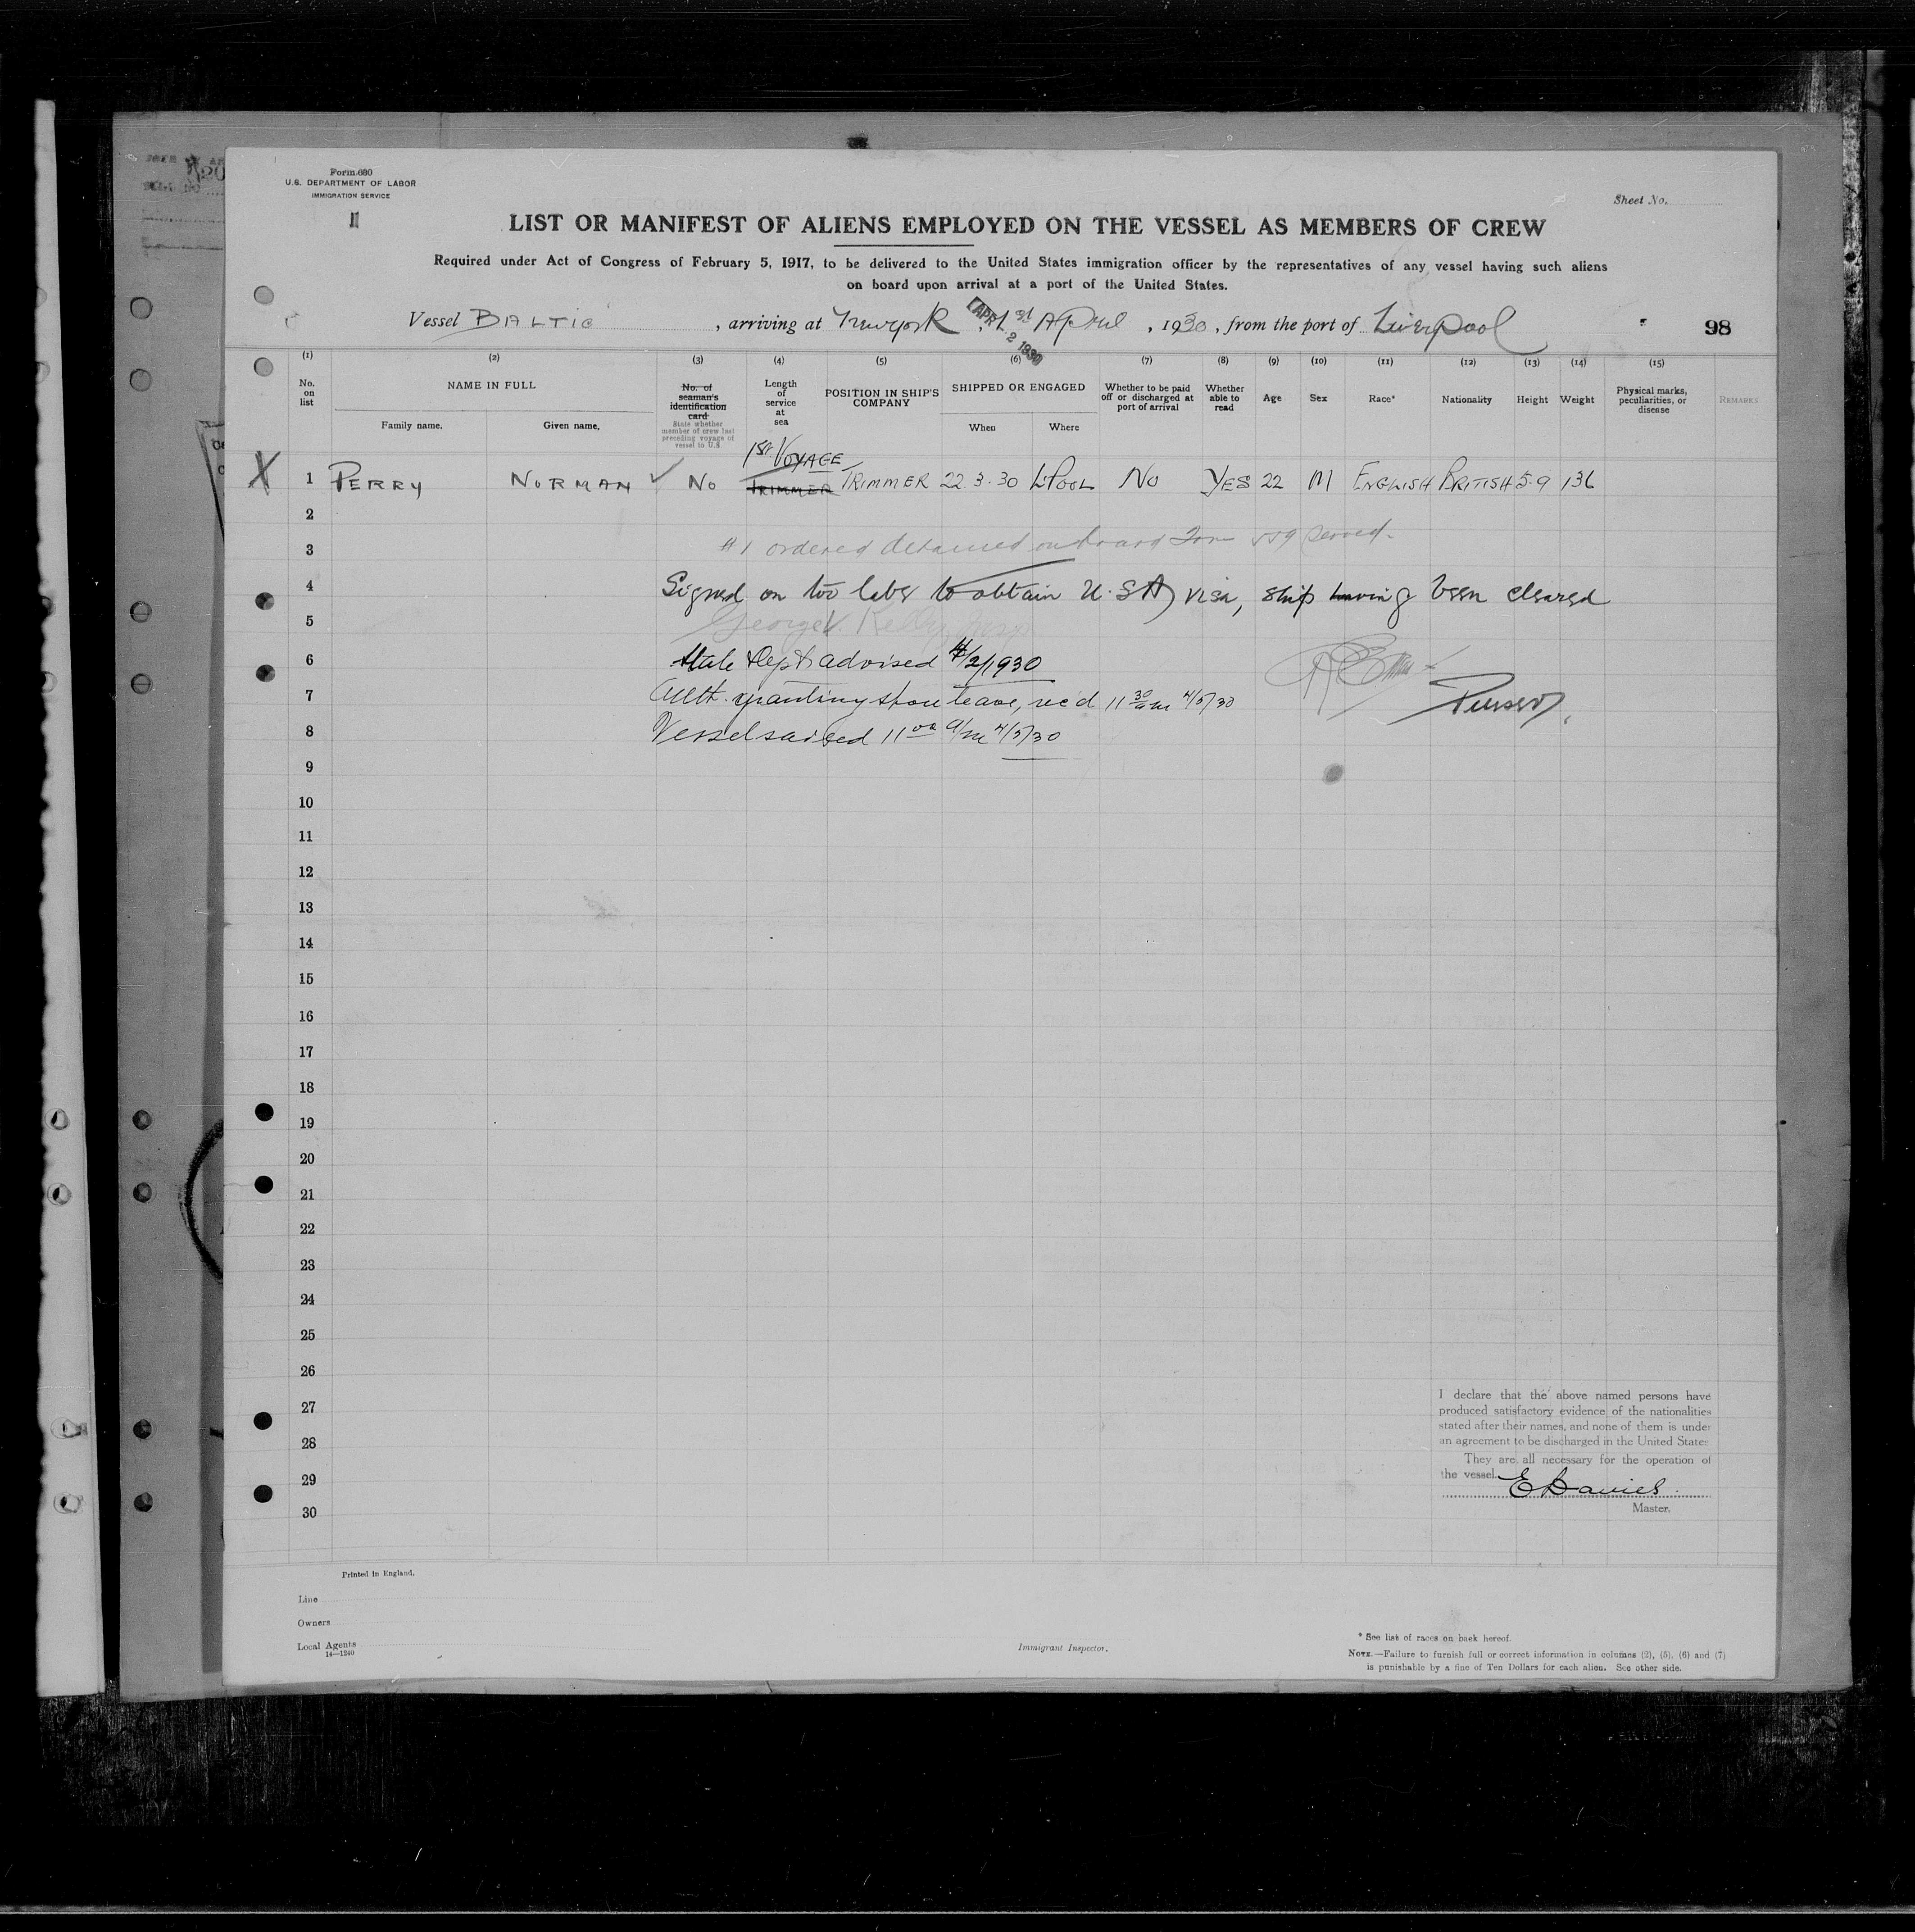 Form 680
U.S. DEPARTMENT OF LABOR
IMMIGRATION SERVICE
Sheet No.
LIST OR MANIFEST OF ALIENS EMPLOYED ON THE VESSEL AS MEMBERS OF CREW
Required under Act of Congress of February 5, 1917, to be delivered to the United States immigration officer by the representatives of any vessel having such aliens
on board upon arrival at a port of the United States.
Vessel BALTIC, arriving at New York, 1st April, 1930, from the port of Liverpool
APR 2 1930
98
(1) (2) (3) (4) (5) (6) (7) (8) (9) (10) (11) (12) (13) (14) (15)
No. on list
NAME IN FULL
Family name. Given name.
No. of seaman's identification card
State whether member of crew last preceding voyage of vessel to U.S.
Length of service at sea
POSITION IN SHIP'S COMPANY
SHIPPED OR ENGAGED
When Where
Whether to be paid off or discharged at port of arrival
Whether able to read
Age
Sex
Race*
Nationality
Height
Weight
Physical marks, peculiarities, or disease
REMARKS
1st VOYAGE
X 1 PERRY NORMAN ✓ No TRIMMER TRIMMER 22.3.30 L'POOL No YES 22 M ENGLISH BRITISH 5.9 136
2
3 #1 ordered detained on board served.
4 Signed on too late to obtain U.S.A. visa, ship having been cleared
5 George V. Kelly, Insp
6 State Dept advised 4/2/1930
7 Auth. granting shore leave, rec'd 11 30 am 4/5/30 Purser.
8 Vessel sailed 11 00 a/m 4/5/30
9
10
11
12
13
14
15
16
17
18
19
20
21
22
23
24
25
26
27
28
29
30
I declare that the above named persons have
produced satisfactory evidence of the nationalities
stated after their names, and none of them is under
an agreement to be discharged in the United States
They are all necessary for the operation of
the vessel.
E Davies.
Master.
Printed in England.
Line
Owners
Local Agents
14—1240
Immigrant Inspector.
* See list of races on back hereof.
NOTE.—Failure to furnish full or correct information in columns (2), (5), (6) and (7)
is punishable by a fine of Ten Dollars for each alien. See other side.